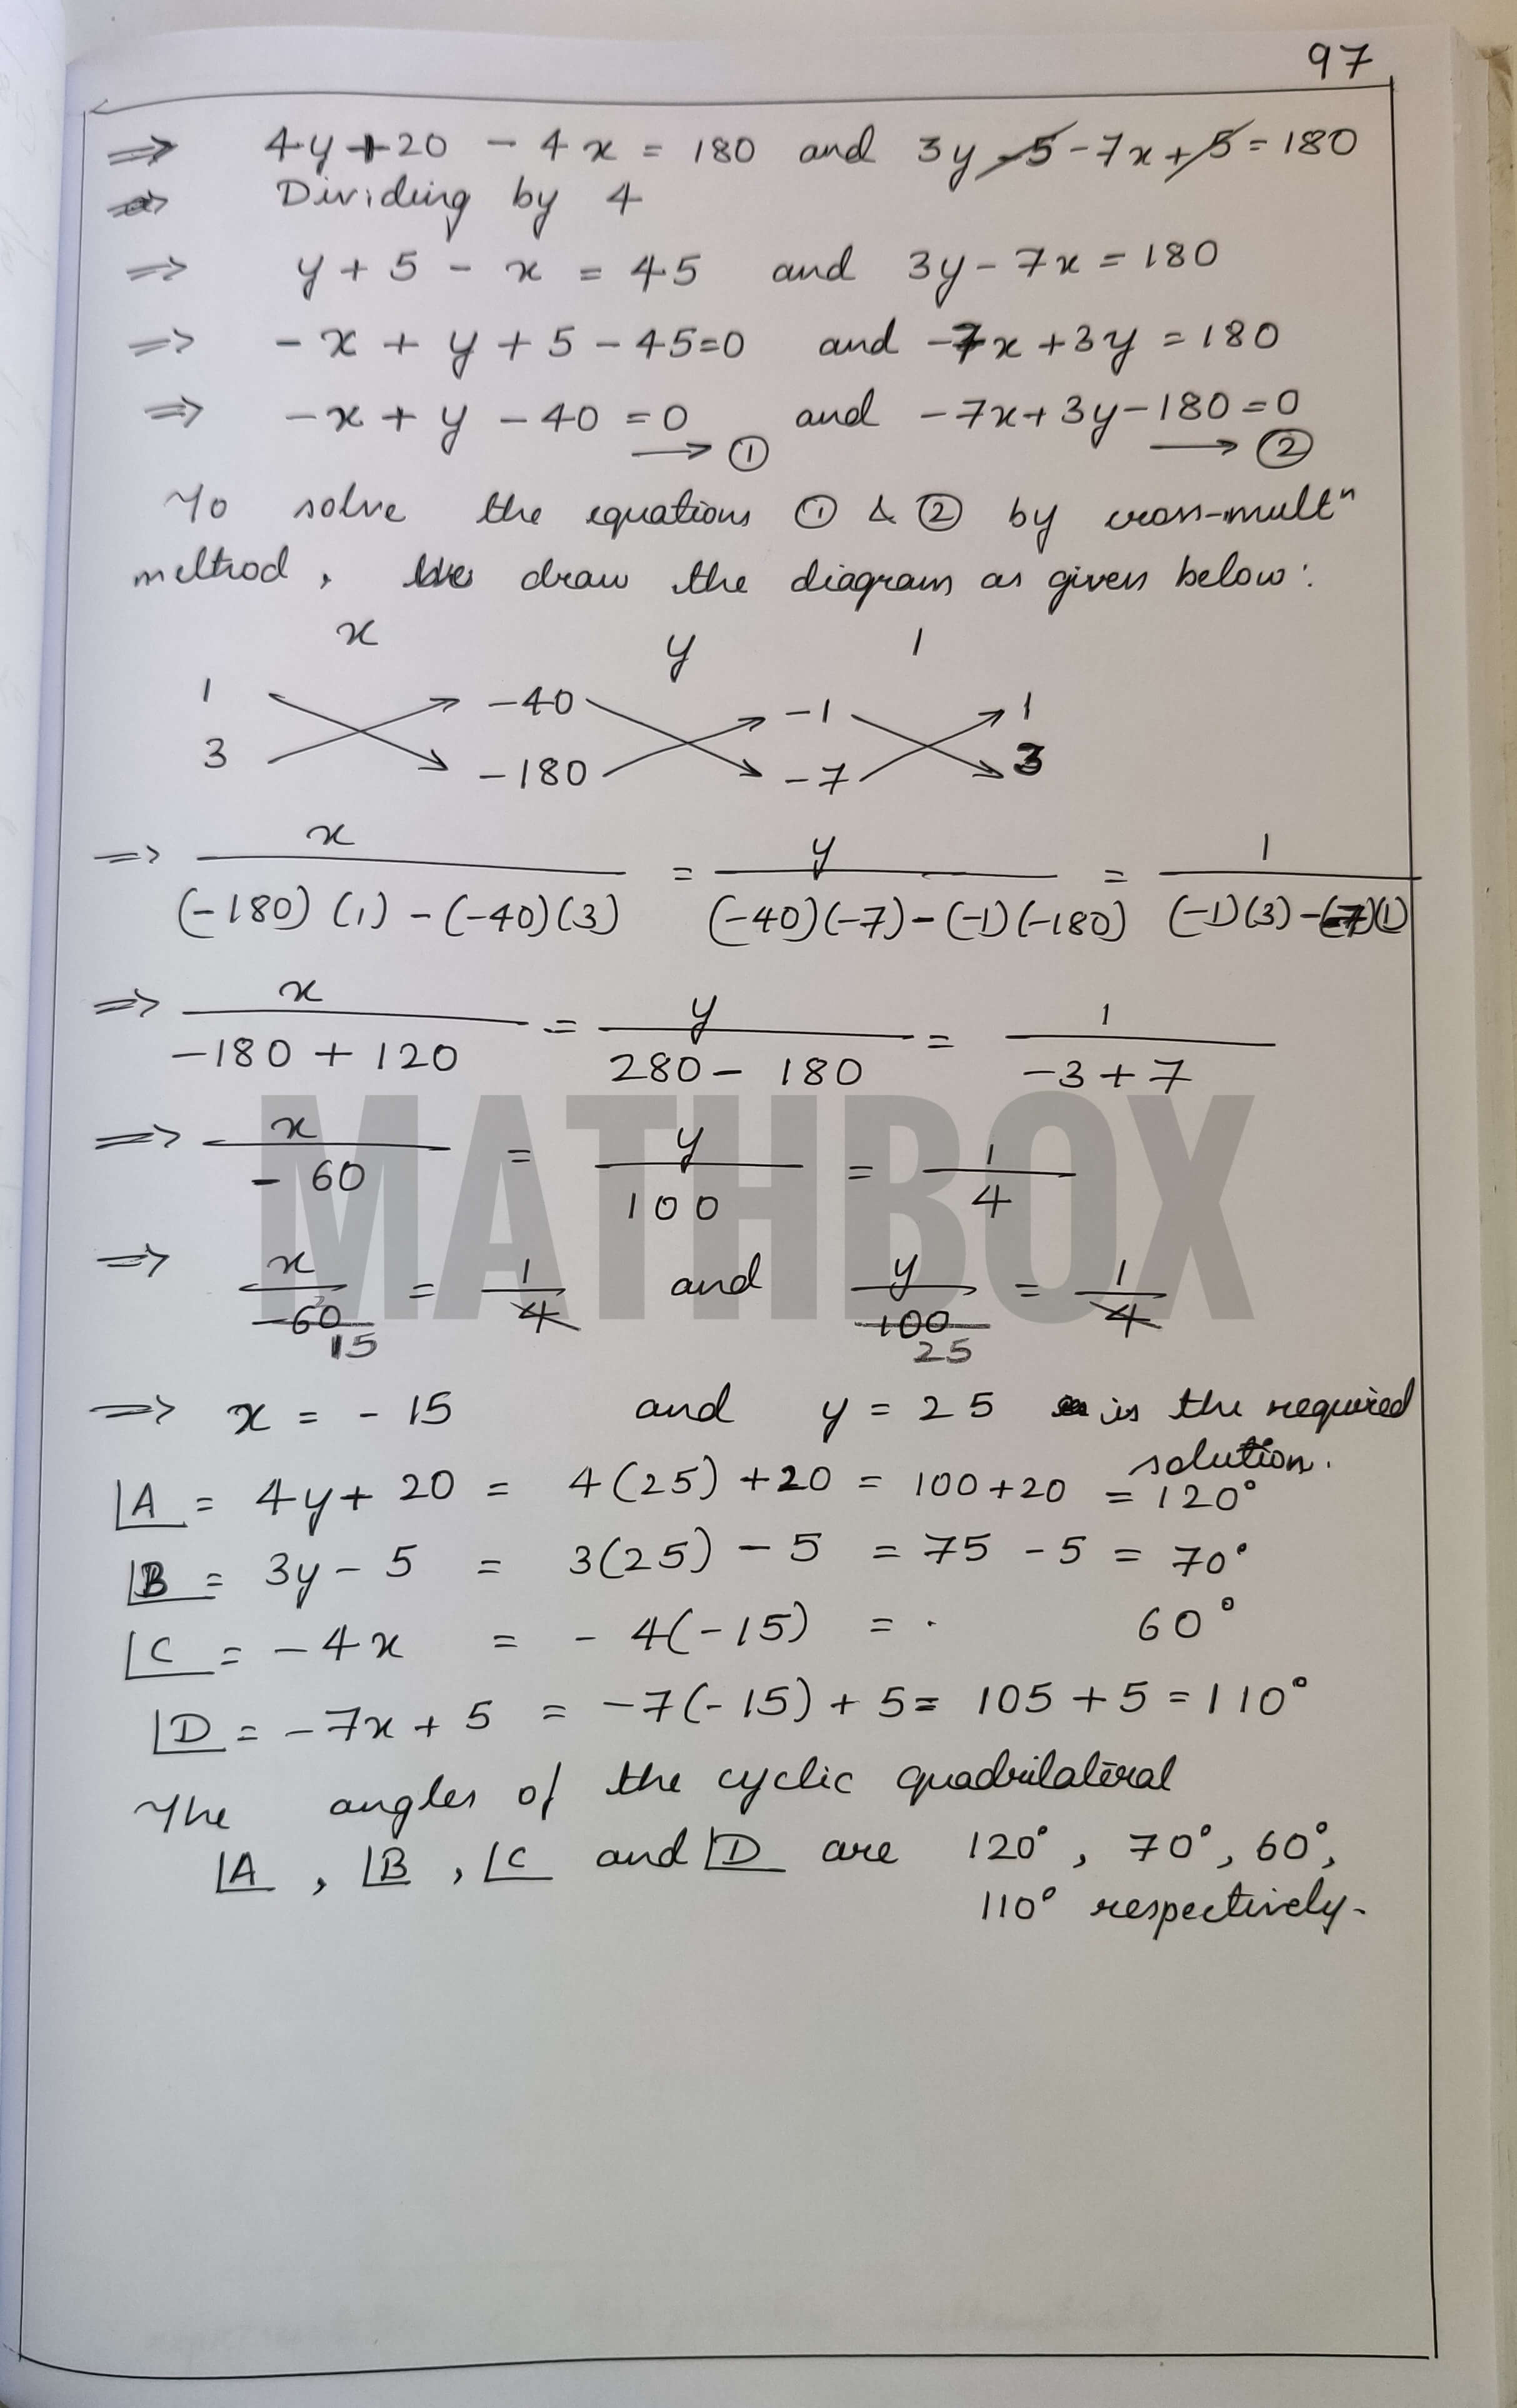 97
⇒ 4y + 20 - 4x = 180 and 3y - 5 - 7x + 5 = 180
⇒ Dividing by 4
⇒ y + 5 - x = 45 and 3y - 7x = 180
⇒ - x + y + 5 - 45 = 0 and -7x + 3y = 180
⇒ -x + y - 40 = 0 and -7x + 3y - 180 = 0
→ ① → ②
To solve the equations ① & ② by cross-multⁿ
method, we draw the diagram as given below:
x y 1
1 -40 -1 1
3 -180 -7 3
⇒ x / (-180)(1) - (-40)(3) = y / (-40)(-7) - (-1)(-180) = 1 / (-1)(3) - (-7)(1)
⇒ x / -180 + 120 = y / 280 - 180 = 1 / -3 + 7
⇒ x / - 60 = y / 100 = 1 / 4
MATHBOX
⇒ x / -60 = 1 / 4 and y / 100 = 1 / 4
15 25
⇒ x = - 15 and y = 25 is the required
solution.
∠A = 4y + 20 = 4(25) + 20 = 100 + 20 = 120°
∠B = 3y - 5 = 3(25) - 5 = 75 - 5 = 70°
∠C = - 4x = - 4(-15) = 60°
∠D = - 7x + 5 = -7(-15) + 5 = 105 + 5 = 110°
The angles of the cyclic quadrilateral
∠A, ∠B, ∠C and ∠D are 120°, 70°, 60°,
110° respectively.